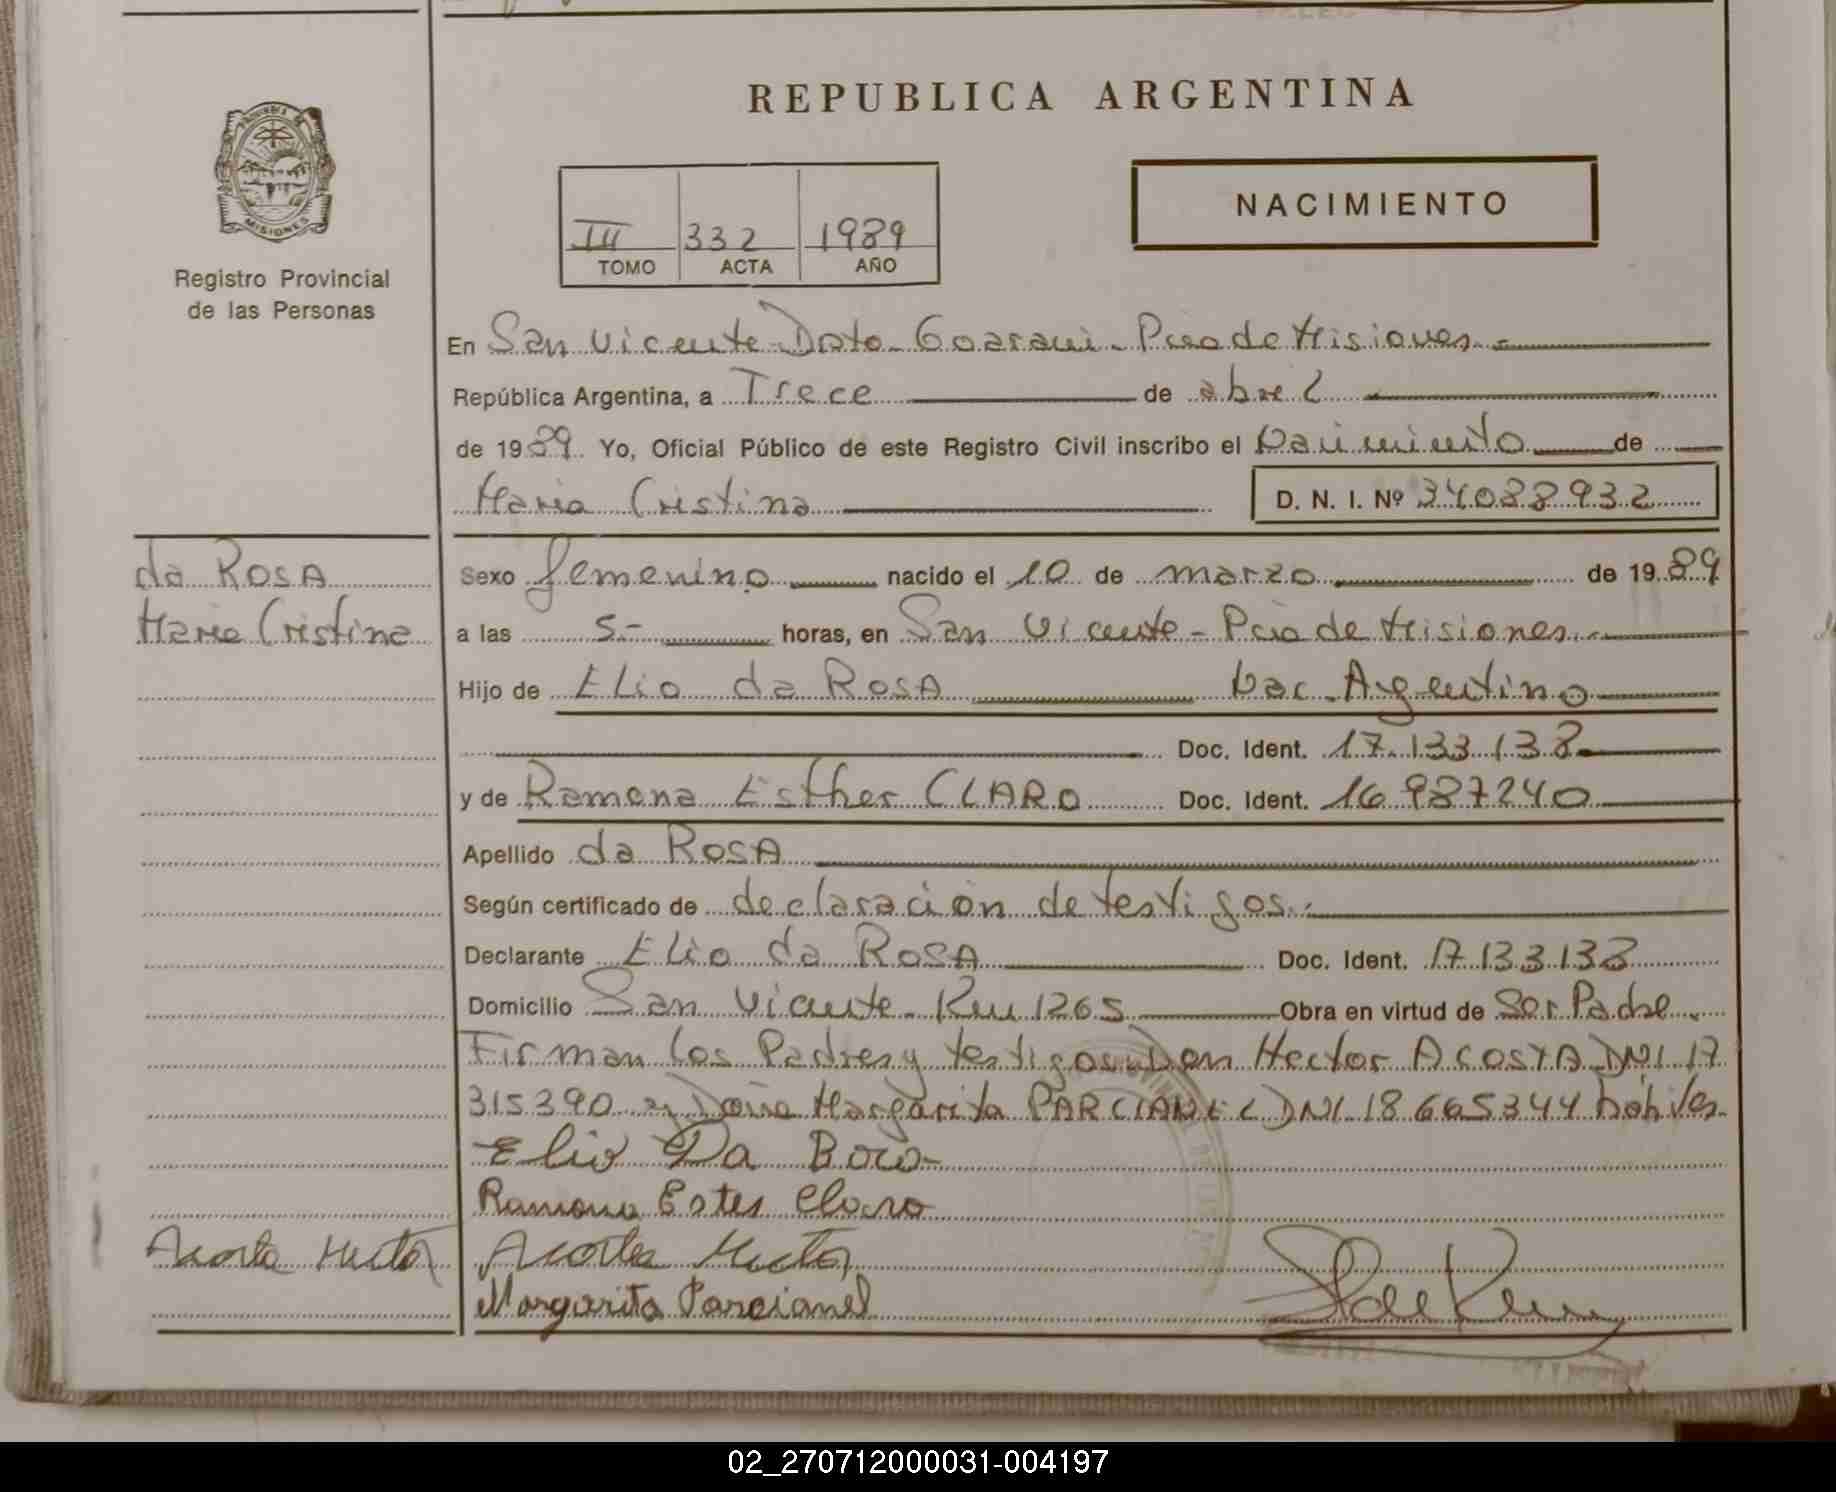 REPUBLICA ARGENTINA
MISIONES
Registro Provincial
de las Personas
III 332 1989
TOMO ACTA AÑO
NACIMIENTO
En San Vicente Dpto. Guarani - Pcia de Misiones.
República Argentina, a Trece de abril
de 1989. Yo, Oficial Público de este Registro Civil inscribo el Nacimiento de
Maria Cristina D. N. I. Nº 34088932
da ROSA
Maria Cristina
Sexo femenino nacido el 10 de marzo de 1989
a las 5.- horas, en San Vicente - Pcia de Misiones.
Hijo de Elio da ROSA Nac. Argentino
Doc. Ident. 17.133.138
y de Ramona Esther CLARO Doc. Ident. 16.987240
Apellido da ROSA
Según certificado de declaración de testigos.
Declarante Elio da ROSA Doc. Ident. 17133138
Domicilio San Vicente - Km 1265 Obra en virtud de Ser Padre.
Firman los Padres y testigos Don Hector ACOSTA DNI 17
315390 y Doña Margarita PARCIANEL DNI 18665344 hábiles.
Elio Da Roco
Ramona Ester Claro
Acosta Hector Acosta Hector
Margarita Parcianel
02_270712000031-004197